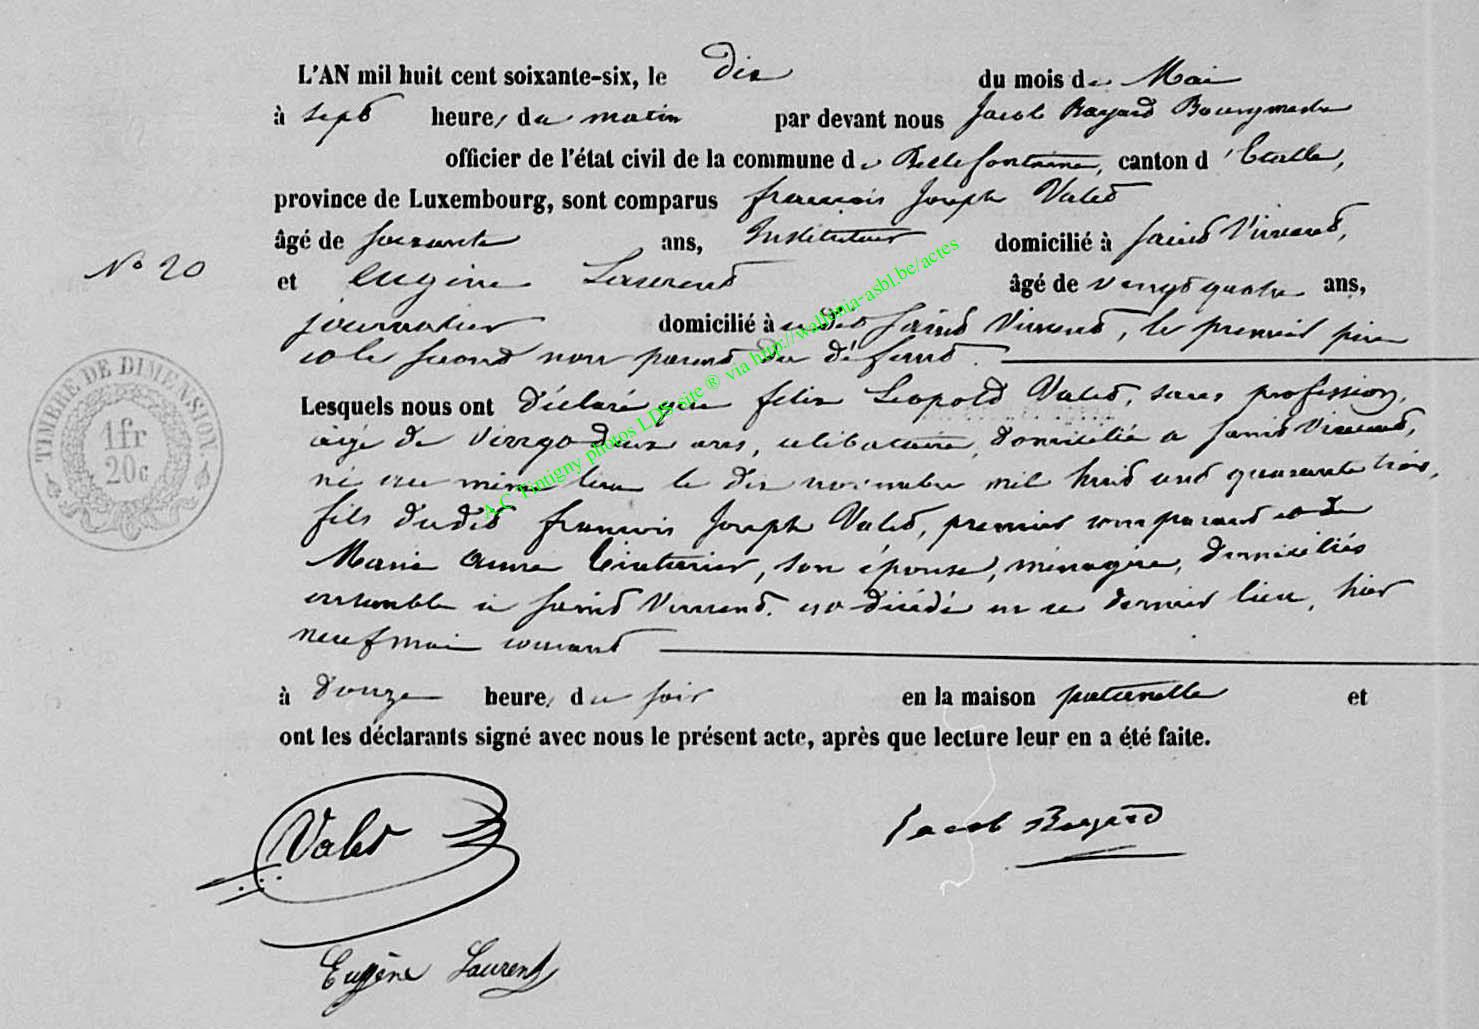 L'AN mil huit cent soixante-six, le dix du mois de Mai
à sept heures du matin par devant nous Jacob Bayard Bourgmestre
officier de l'état civil de la commune de Bellefontaine, canton d'Etalle,
province de Luxembourg, sont comparus françois Joseph Valet
âgé de soixante ans, Instituteur domicilié à Saint Vincent,
N° 20
et Eugène Laurent âgé de vingt quatre ans,
journalier domicilié à Saint Vincent, le premier père
et le second non parent du défunt.
Lesquels nous ont déclaré que felix Léopold Valet, sans profession,
âgé de vingt deux ans, célibataire, domicilié à Saint Vincent,
né au même lieu le dix novembre mil huit cent quarante trois,
fils dudit françois Joseph Valet, premier comparant et de
Marie Anne Teinturier, son épouse, ménagère, domiciliés
ensemble à Saint Vincent, est décédé en ce dernier lieu, hier
neuf mai courant
à douze heures du soir en la maison paternelle et
ont les déclarants signé avec nous le présent acte, après que lecture leur en a été faite.
TIMBRE DE DIMENSION.
1fr
20c
Valet
Jacob Bayard
Eugène Laurent
A.C Tintigny photos LDS site ® via http://wallonia-asbl.be/actes